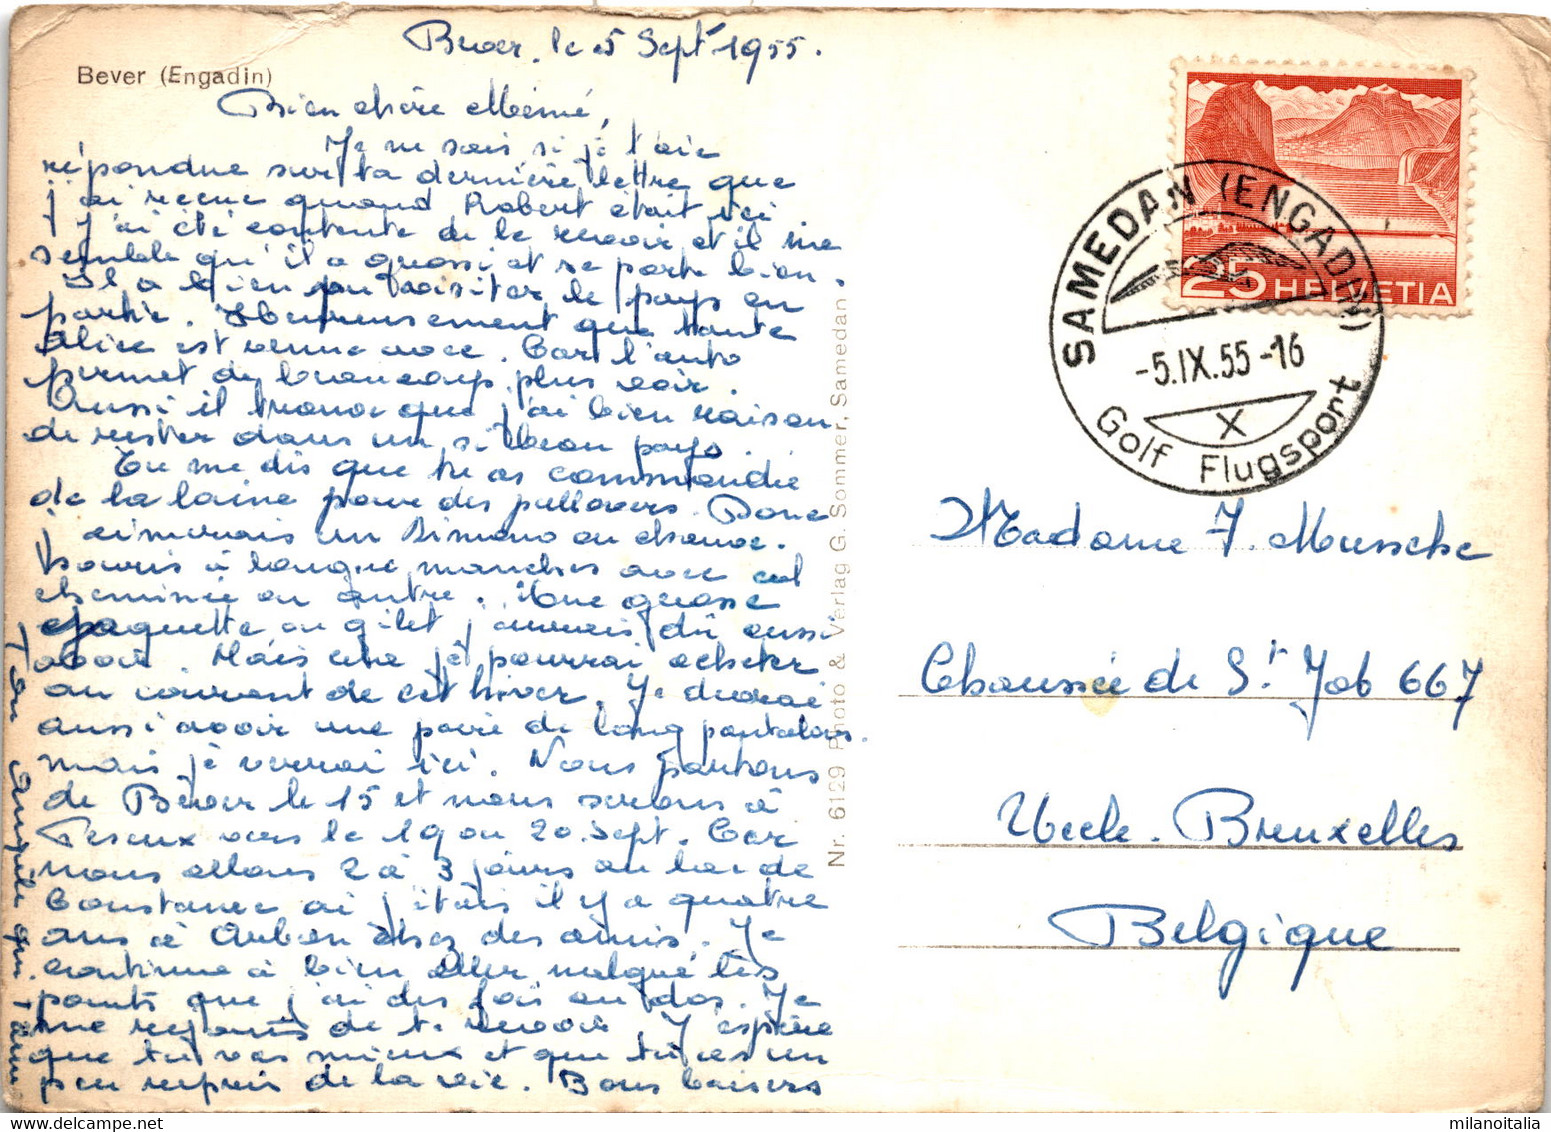 Bever, le 5 Sept 1955.
Bever (Engadin)
Bien chère Mémé,
Je ne sais si je t'aie
répondue sur ta dernière lettre que
j'ai reçue quand Robert était ici.
J'ai été contente de le revoir et il me
semble qu'il a grossi et se porte bien.
Il a bien pu visiter le pays en
partie. Heureusement que tante
Alice est venue avec. Car l'auto
permet de beaucoup plus voir.
Aussi il trouve que j'ai bien raison
de rester dans un si beau pays.
Tu me dis que tu as commandé
de la laine pour des pullovers. Donc
j'aimerais un kimono ou chauve-
souris à longue manches avec col
cheminée ou autre. Une grosse
jaquette ou gilet j'aurais dû aussi
avoir. Mais cela je pourrai acheter
au courant de cet hiver. Je devrai
aussi avoir une paire de long pantalons.
mais je verrai ici. Nous partons
de Bever le 15 et nous serons à
Peseux vers le 19 ou 20 Sept. Car
nous allons 2 à 3 jours au lac de
Constance où j'étais il y a quatre
ans à Arbon chez des amis. Je
continue à bien aller malgré les
points que j'ai des fois au dos. Je
me réjouis de te revoir. J'espère
que tu vas mieux et que tu as un
peu repris de la vie. Bons baisers
Ton Angèle qui t'aime
Nr. 6129 Photo & Verlag G. Sommer, Samedan
25 HELVETIA
SAMEDAN (ENGADIN)
-5.IX.55-16
X
Golf Flugsport
Madame J. Mussche
Chaussée de St Job 667
Uccle-Bruxelles
Belgique
milanoitalia